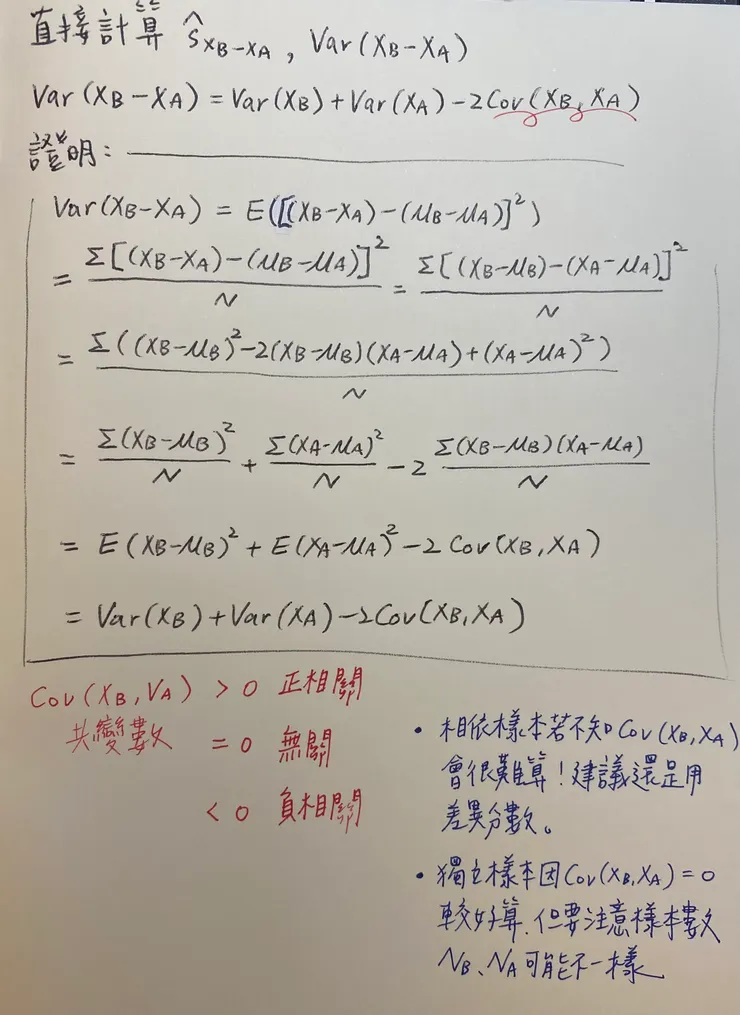 直接計算 ŝ_{X_B-X_A} , Var(X_B-X_A)
Var(X_B-X_A) = Var(X_B)+Var(X_A)-2Cov(X_B,X_A)
證明:
Var(X_B-X_A) = E([(X_B-X_A)-(μ_B-μ_A)]²)
= Σ[(X_B-X_A)-(μ_B-μ_A)]²/N = Σ[(X_B-μ_B)-(X_A-μ_A)]²/N
= Σ((X_B-μ_B)²-2(X_B-μ_B)(X_A-μ_A)+(X_A-μ_A)²)/N
= Σ(X_B-μ_B)²/N + Σ(X_A-μ_A)²/N -2 Σ(X_B-μ_B)(X_A-μ_A)/N
= E(X_B-μ_B)²+E(X_A-μ_A)²-2 Cov(X_B,X_A)
= Var(X_B)+Var(X_A)-2Cov(X_B,X_A)
Cov(X_B,V_A) > 0 正相關
共變數 = 0 無關
< 0 負相關
• 相依樣本若不知 Cov(X_B,X_A)
會很難算!建議還是用
差異分數。
• 獨立樣本因Cov(X_B,X_A)=0
較好算,但要注意樣本數
N_B、N_A可能不一樣